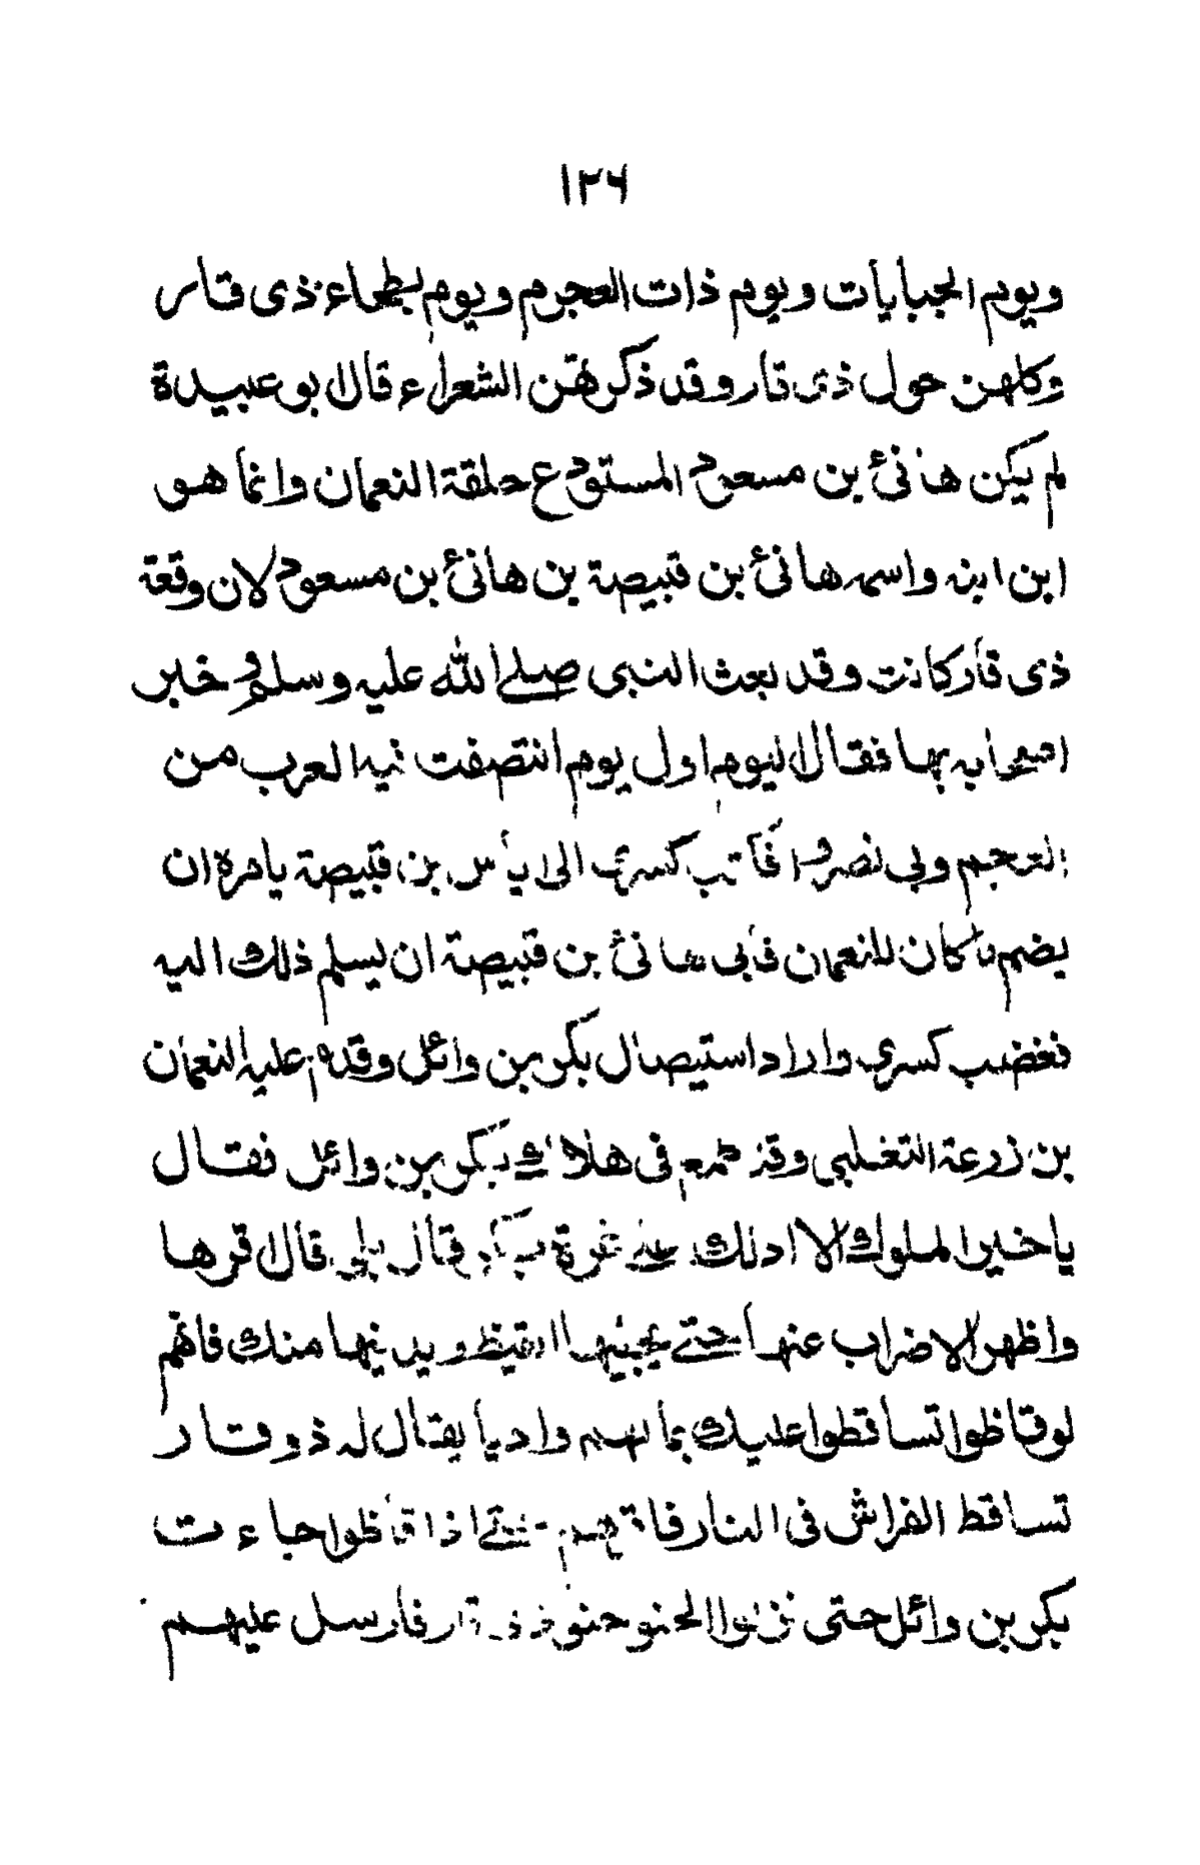 ١٢٦
ويوم الجبايات ويوم ذات العجرم ويوم بطحاء ذى قار
وكلهن حول ذى قار وقد ذكرهن الشعراء قال ابو عبيدة
لم يكن هانئ بن مسعود المستودع حلقة النعمان وانما هو
ابن ابنه واسمه هانئ بن قبيصة بن هانئ بن مسعود لان وقعة
ذى قار كانت وقد بعث النبى صلى الله عليه وسلم وخبر
اصحابه بها فقال اليوم اول يوم انتصفت فيه العرب من
العجم وبى نصروا فكتب كسرى الى اياس بن قبيصة يامره ان
يضم ما كان للنعمان فابى هانئ بن قبيصة ان يسلم ذلك اليه
فغضب كسرى واراد استيصال بكر بن وائل وقدم عليه النعمان
بن زرعة التغلبى وقد طمع فى هلاك بكر بن وائل فقال
يا خير الملوك الا ادلك على غرة بكر قال بلى قال قرها
واظهر الاضراب عنها حتى يجيئها القيظ ويدنيها منك فانهم
لو قاظوا تساقطوا عليك بما لهم واديا يقال له ذو قار
تساقط الفراش فى النار فاقرهم حتى اذا قاظوا جاءت
بكر بن وائل حتى نزلوا الحنو حنو ذى قار فارسل عليهم